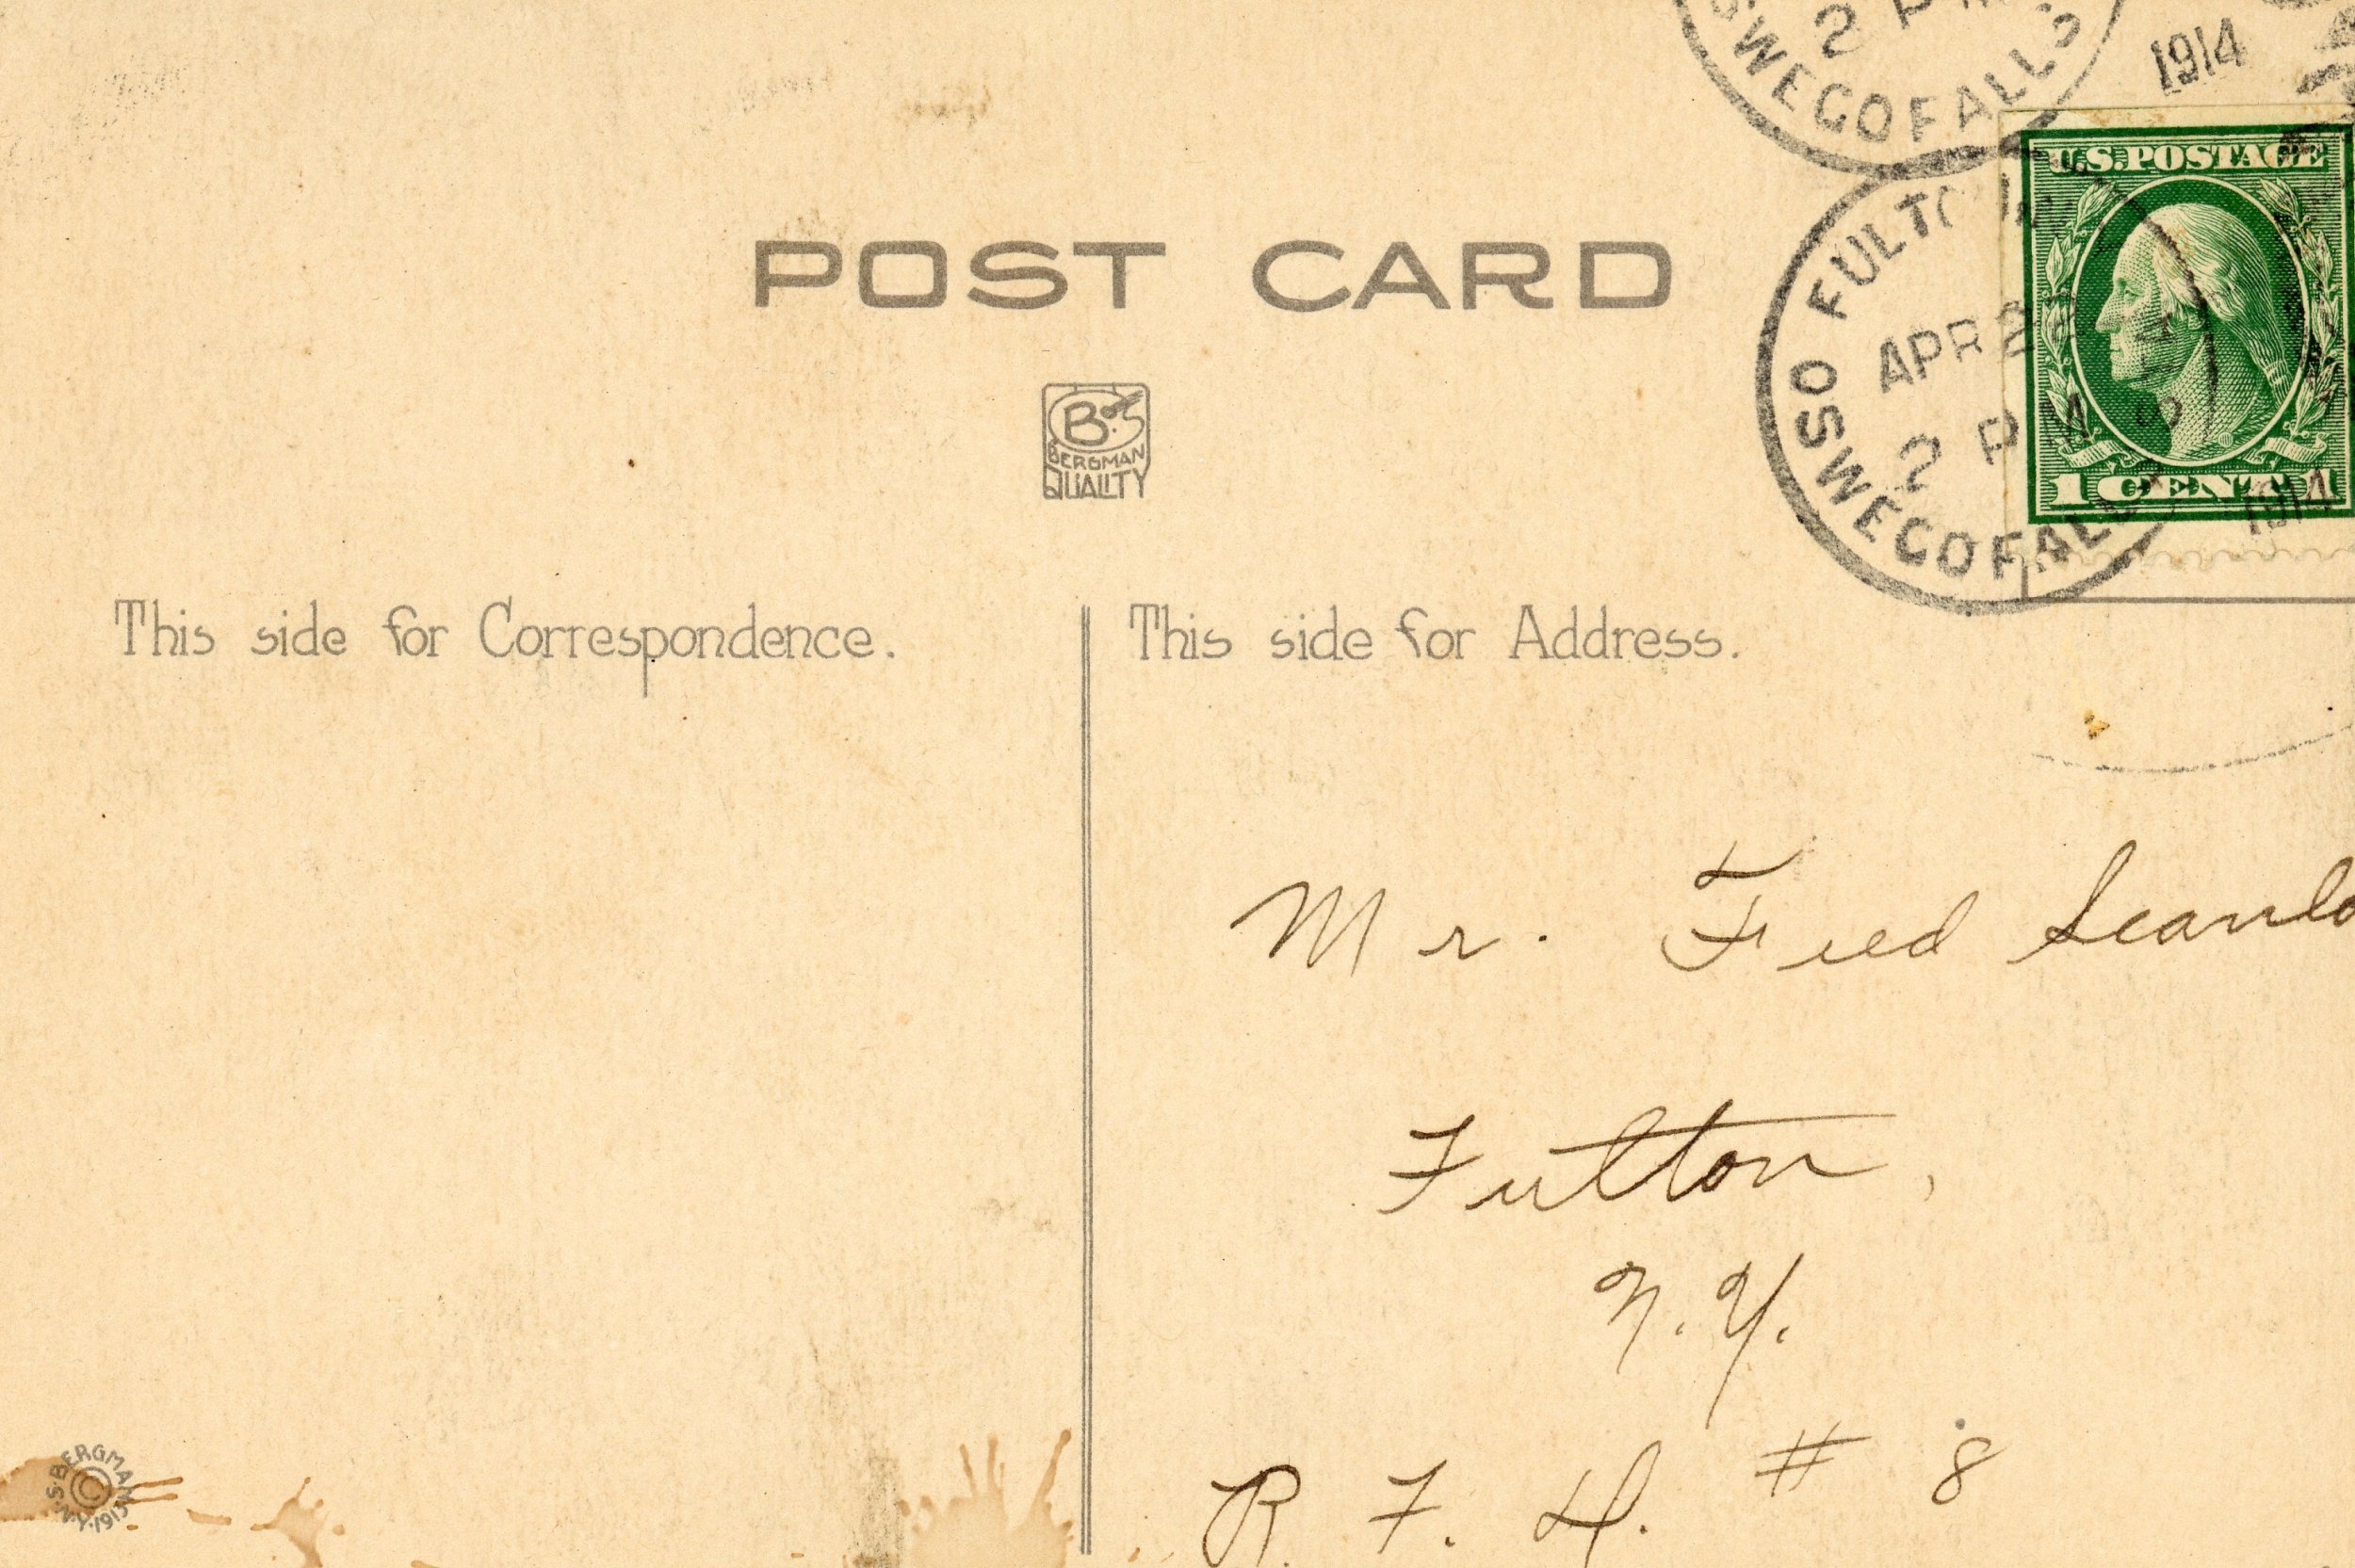 2 P
SWEGOFALLS
1914
U.S.POSTAGE
1 CENT 1
SO FULTON
APR 2
2 PM
SWEGOFALLS
1914
POST CARD
B.S
BERGMAN
QUALITY
This side for Correspondence.
This side for Address.
Mr. Fred Scanlo
Fulton,
N.Y.
R. F. D. # 8
S.BERGMAN N.Y.1913
©